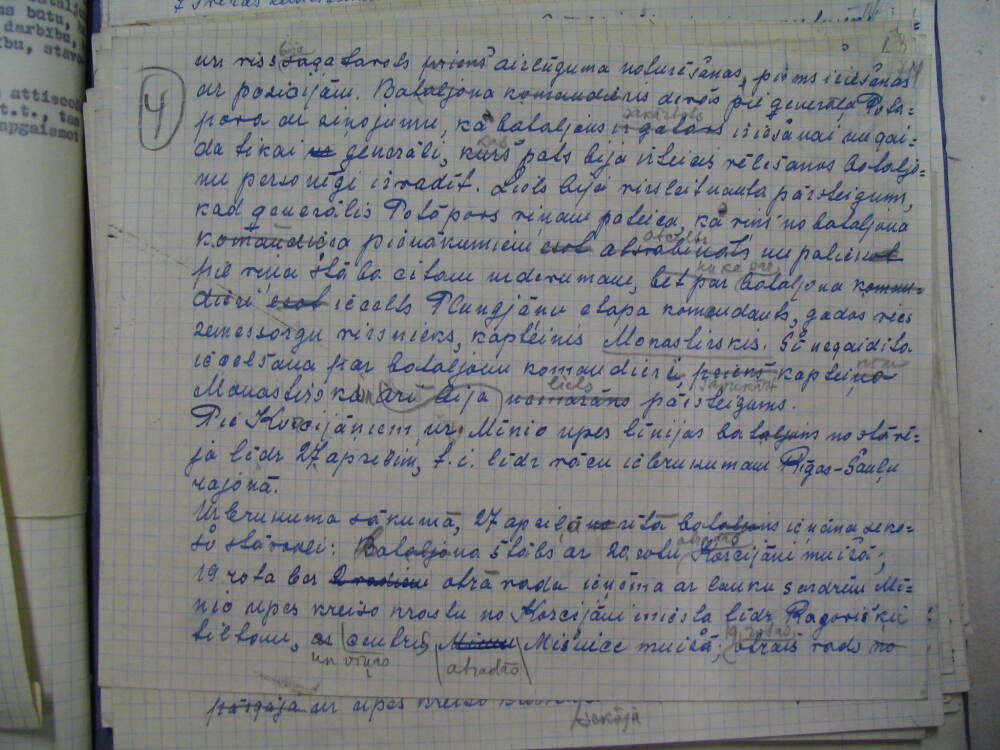 ataljo-
as batu,
darbību,
ību, stavo
attieco
t.t., tas
apgaismot
4
un viss bija sagatavots aizlūguma noturēšanas, pirms iziešanas
ar pozicijām. Bataljona komandieris devās pie generāļa Potā-
pova ar ziņojumu, ka bataljons sakārtots ir gatavs iziešanai un gai-
da tikai generāli, kurš kas pats bija izteicis vēlēšanos bataljo-
nu personīgi izvadīt. Liels bija virsleitnanta pārsteigums,
kad generālis Potāpovs viņam pateica, ka viņš no bataljona
komandiera pienākumiem esot atsvabināts atcelts un paliekot
pie viņa štāba citam uzdevumam, bet par bataljona koman-
dieri esot iecelts Plungjānu etapa komandants, gados vecs
zemessorgu virsnieks, kapteinis Monastirskis. Šī negaidītā
iecelšana par bataljona komandieri, kapteinim
Monastirskam arī bija liels pārsteigums.
Pie Korcijāniem, uz Minio upes līnijas bataljons nostāvē-
ja līdz 27 aprīlim, t.i. līdz vācu iebrukumam Rīgas-Šauļu
rajonā.
Iebrukuma sākumā, 27 aprīļa rītā bataljons ieņēma seko-
šo stāvokli: Bataljona štābs ar 20. rotu atradās Korcijāni muižā;
19 rota bez otrā vada ieņēma ar lauku sardzēm Mi-
nio upes kreiso krastu no Korcijāni miesta līdz Ragoviški
tiltam, un viņas centrs atradās Mišeice muižā; 19 rotas otrais vads no
pārgāja uz upes kreiso
Sekoja